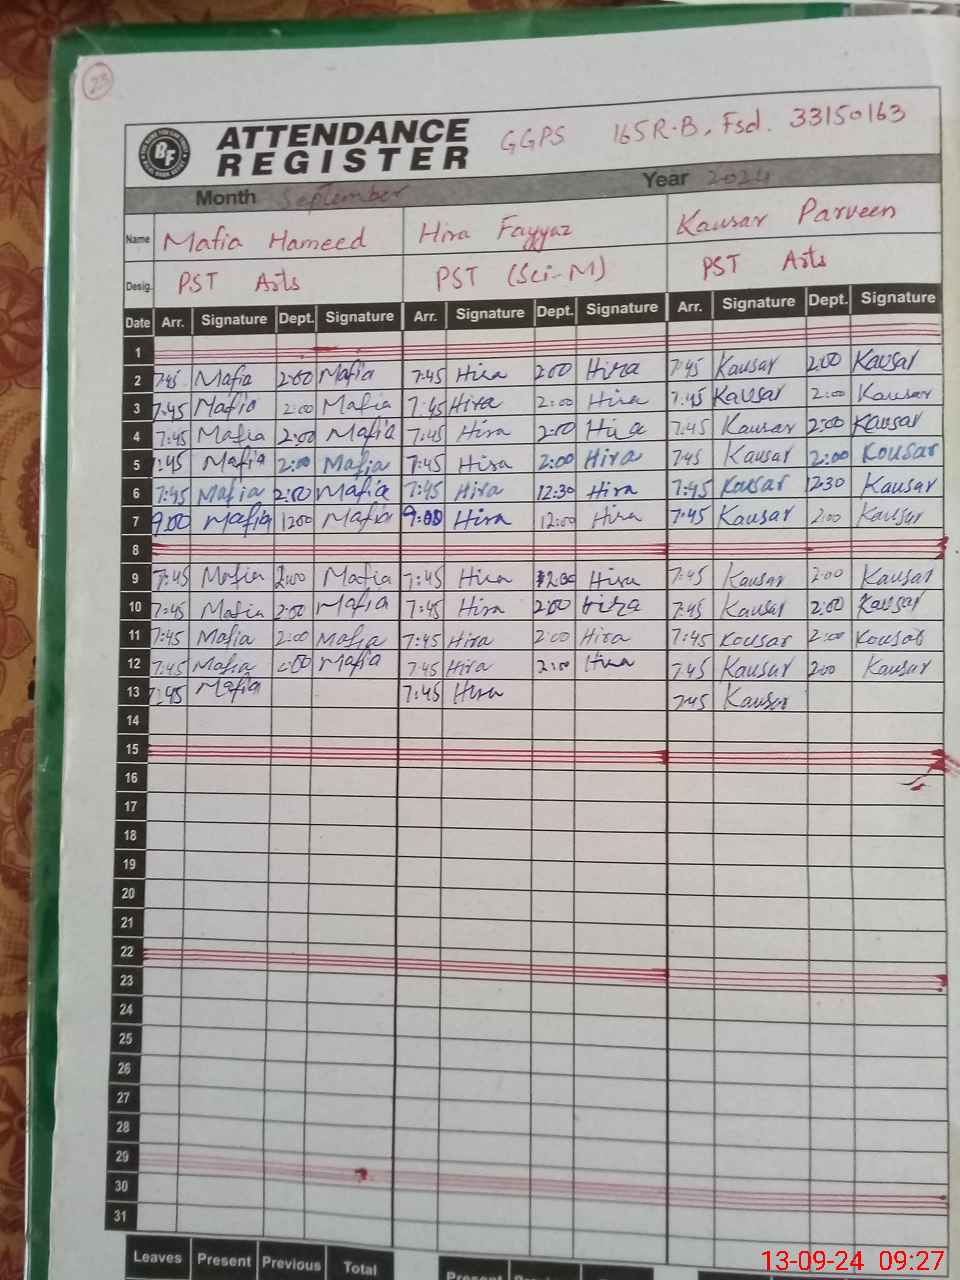 23
ATTENDANCE REGISTER
BF
GGPS 165R-B, Fsd. 33150163
Month September Year 2024
Name Mafia Hameed Hira Fayyaz Kausar Parveen
Desig. PST Arts PST (Sci-M) PST Arts
Date Arr. Signature Dept. Signature Arr. Signature Dept. Signature Arr. Signature Dept. Signature
1
2 7:45 Mafia 2:00 Mafia 7:45 Hira 2:00 Hira 7:45 Kausar 2:00 Kausar
3 7:45 Mafia 2:00 Mafia 7:45 Hira 2:00 Hira 7:45 Kausar 2:00 Kausar
4 7:45 Mafia 2:00 Mafia 7:45 Hira 2:00 Hira 7:45 Kausar 2:00 Kausar
5 7:45 Mafia 2:00 Mafia 7:45 Hira 2:00 Hira 7:45 Kausar 2:00 Kousar
6 7:45 Mafia 2:00 Mafia 7:45 Hira 12:30 Hira 7:45 Kousar 12:30 Kausar
7 9:00 Mafia 12:00 Mafia 9:00 Hira 12:00 Hira 7:45 Kausar 2:00 Kausar
8
9 7:45 Mafia 2:00 Mafia 7:45 Hira Hira 7:45 Kausar 2:00 Kausar
10 7:45 Mafia 2:00 Mafia 7:45 Hira 2:00 Hira 7:45 Kausar 2:00 Kausar
11 7:45 Mafia 2:00 Mafia 7:45 Hira 2:00 Hira 7:45 Kousar 2:00 Kousar
12 7:45 Mafia 2:00 Mafia 7:45 Hira 2:00 Hira 7:45 Kausar 2:00 Kausar
13 7:45 Mafia 7:45 Hira 7:45 Kausar
14
15
16
17
18
19
20
21
22
23
24
25
26
27
28
29
30
31
Leaves Present Previous Total Present
13-09-24 09:27